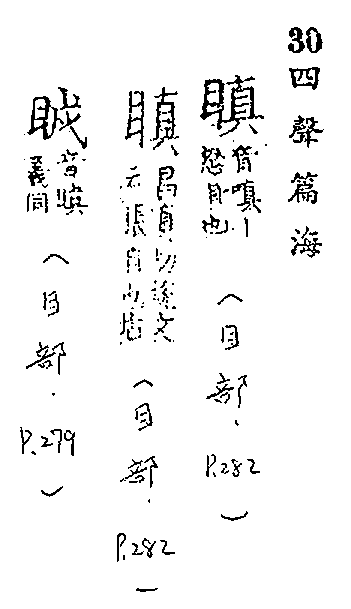 30 四聲篇海
瞋 音嗔丨怒目也（目部．P.282）
瞋 昌眞切說文云張目也（目部．P.282）
音瞋義同（目部．P.279）